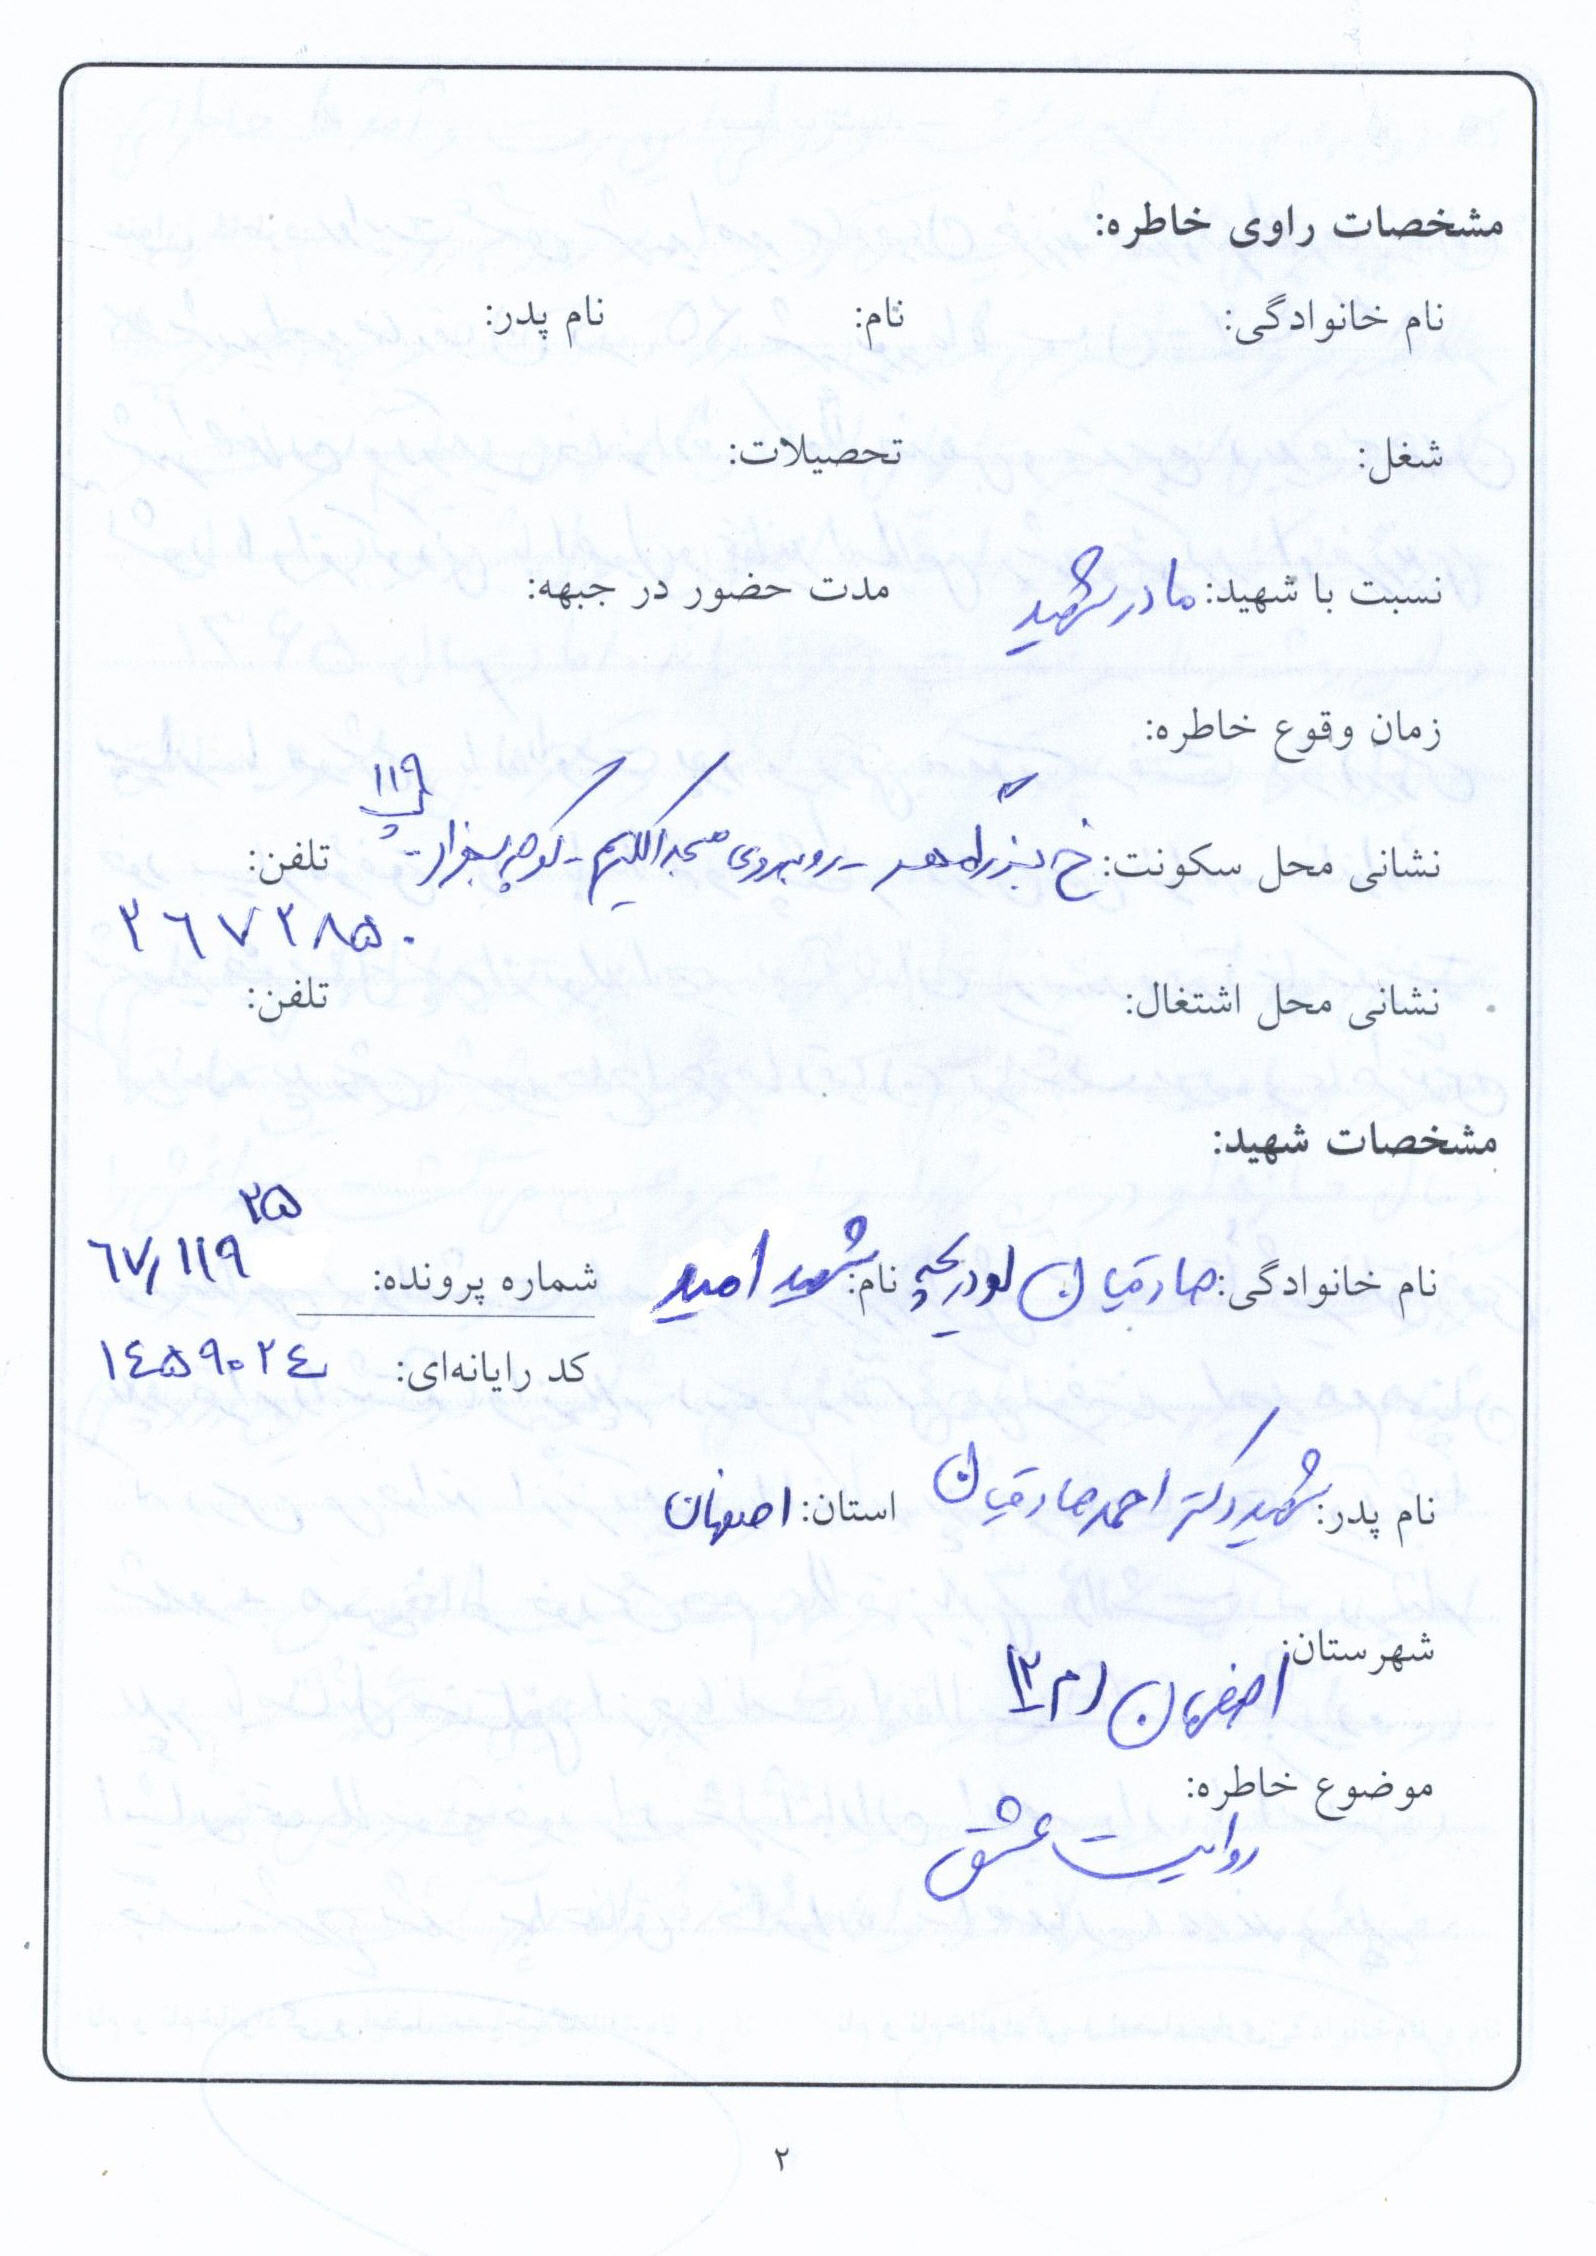 مشخصات راوی خاطره:
نام خانوادگی: نام: نام پدر:
شغل: تحصیلات:
نسبت با شهید: مادر شهید مدت حضور در جبهه:
زمان وقوع خاطره:
پ ۱۱۹
نشانی محل سکونت: خ - روبروی مسجد الکریم - کوچه - تلفن:
۳۶۷۲۸۵۰
نشانی محل اشتغال: تلفن:
مشخصات شهید:
۲۵
نام خانوادگی: صادقیان لودریچه نام: شهید امید شماره پرونده: ۶۷/۱۱۹
کد رایانه‌ای: ۱۴۵۹۰۲۴
نام پدر: شهید دکتر احمد صادقیان استان: اصفهان
شهرستان: اصفهان
موضوع خاطره:
روایت عشق
۲